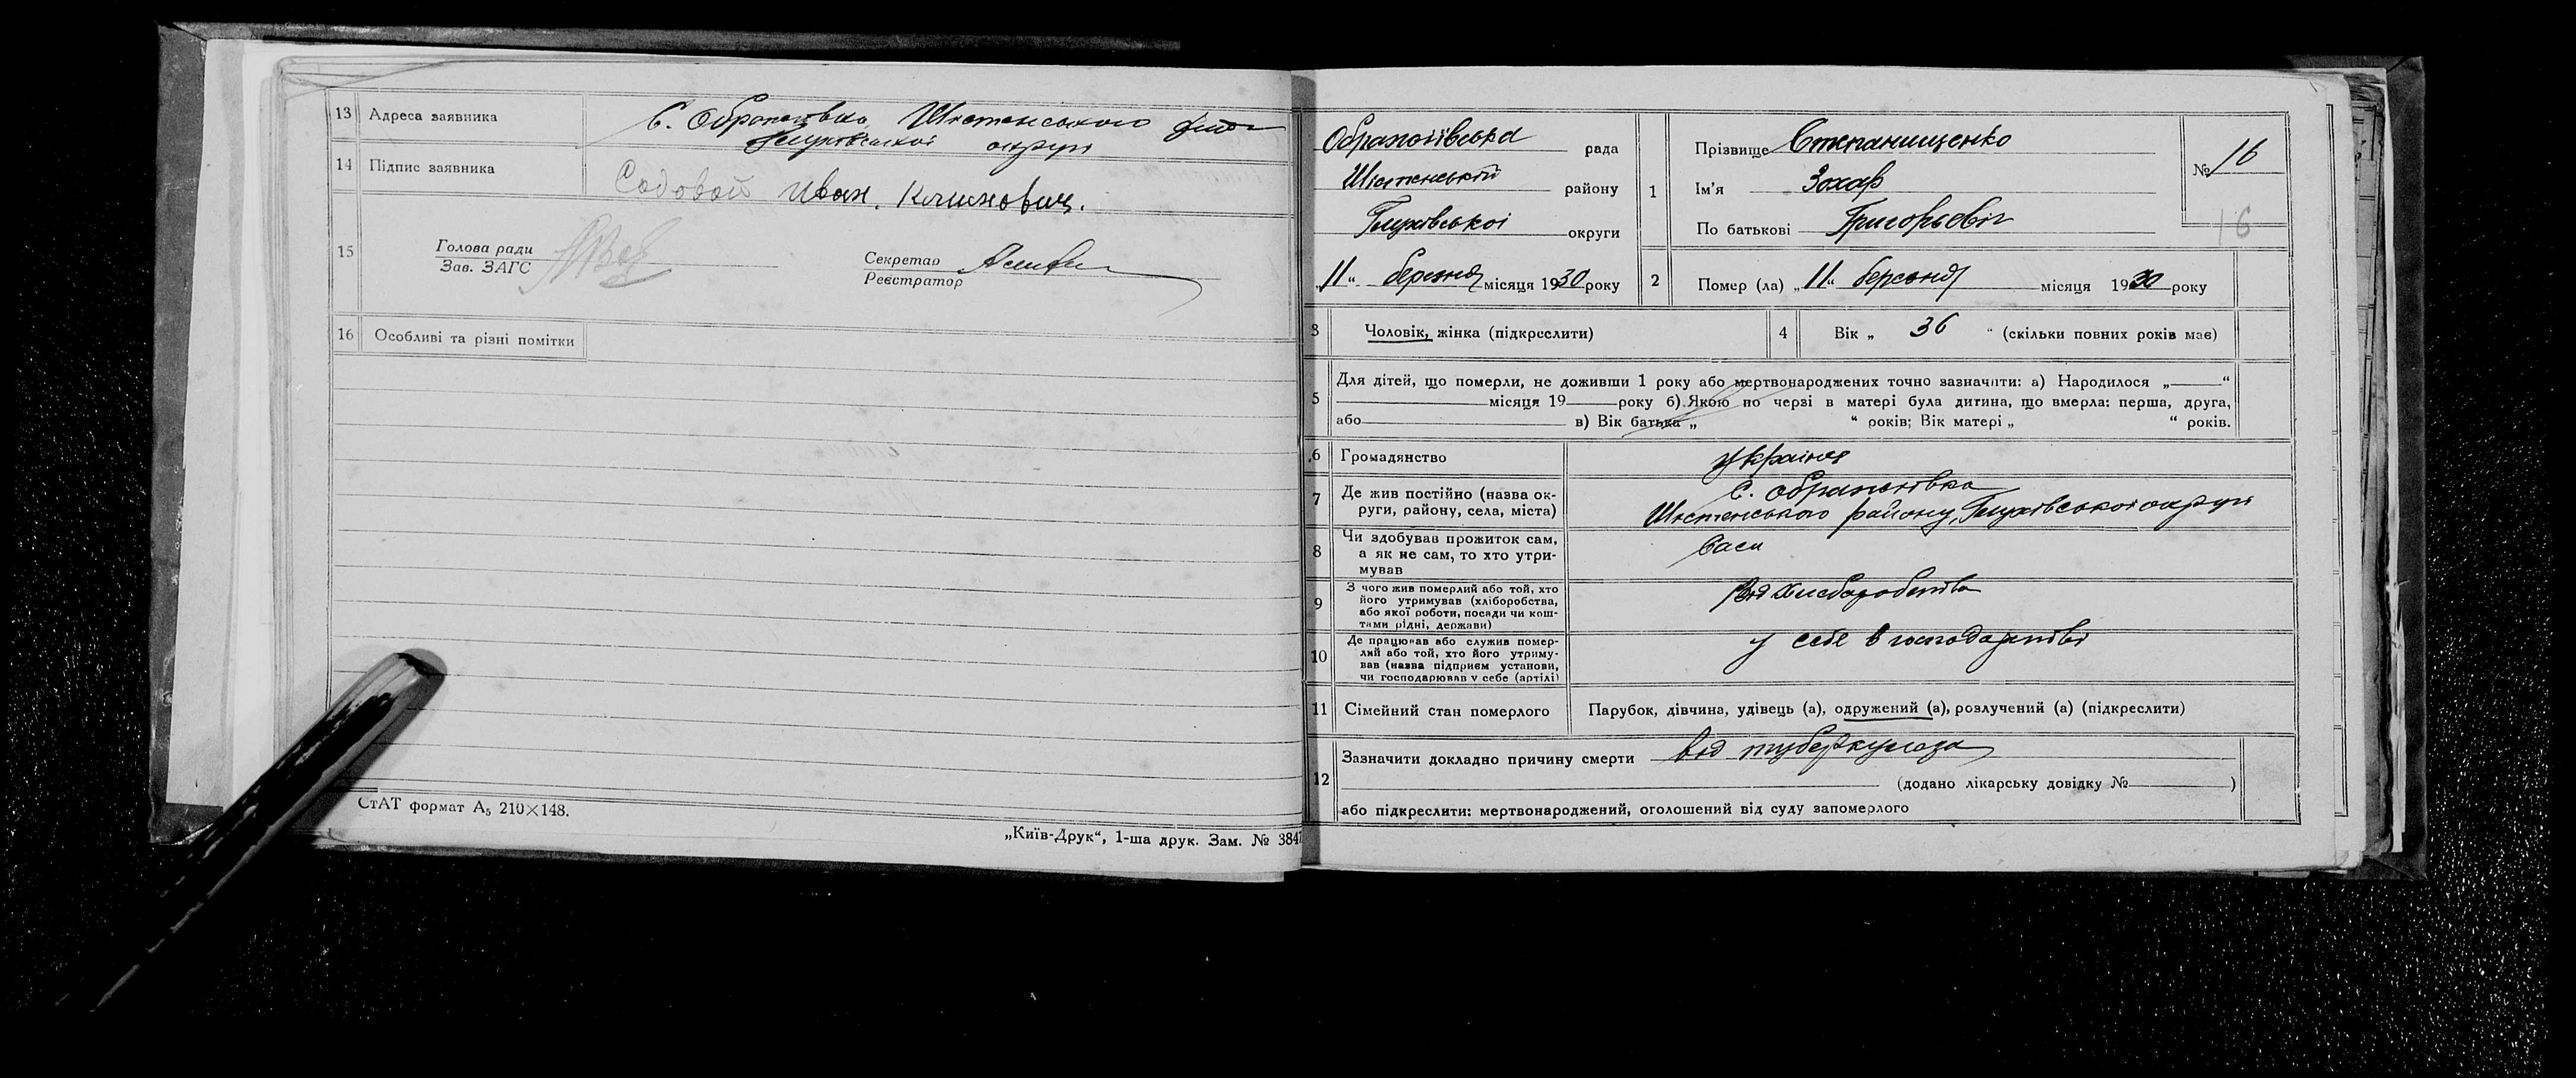 13 Адреса заявника С. Ображеївка Шостенського
Глухівської округи
14 Підпис заявника Содовой Иван. Климович.
15 Голова ради
Зав. ЗАГС
Секретар
Реєстратор
16 Особливі та різні помітки
СтАТ формат А₅ 210×148.
„Київ-Друк“, 1-ша друк. Зам. № 3847
Ображіївська рада
Шостенський району
Глухівської округи
„11“ березня місяця 1930 року
1 Прізвище Степанищенко
Ім’я Зохар
По батькові Григорьевіч
№ 16
16
2 Помер (ла) „11“ березня місяця 1930 року
3 Чоловік, жінка (підкреслити)
4 Вік „ 36 “ (скільки повних років має)
5 Для дітей, що померли, не доживши 1 року або мертвонароджених точно зазначити: а) Народилося „ “
місяця 19 року б) Якою по черзі в матері була дитина, що вмерла: перша, друга,
або в) Вік батька „ “ років; Вік матері „ “ років.
6 Громадянство україня
7 Де жив постійно (назва ок-
руги, району, села, міста)
С. Ображеївка
Шостенського району, Глухівської округи
8 Чи здобував прожиток сам,
а як не сам, то хто утри-
мував
Сам
9 З чого жив померлий або той, хто
його утримував (хліборобства,
або якої роботи, посади чи кош-
тами рідні, держави)
від хлеборобства
10 Де працював або служив помер-
лий або той, хто його утриму-
вав (назва підприєм установи,
чи господарював у себе (артілі)
у себе в господарстві
11 Сімейний стан померлого Парубок, дівчина, удівець (а), одружений (а), розлучений (а) (підкреслити)
12 Зазначити докладно причину смерти від туберкульоза
(додано лікарську довідку № )
або підкреслити: мертвонароджений, оголошений від суду запомерлого